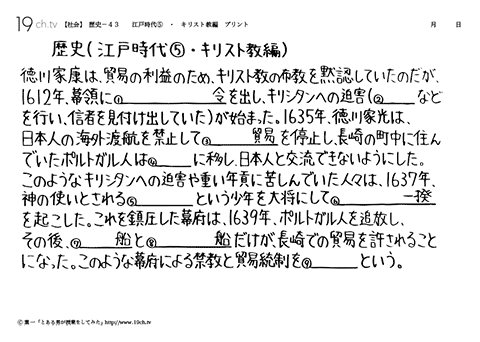 19ch.tv 【社会】 歴史-43 江戸時代⑤ ・ キリスト教編 プリント 月 日
歴史(江戸時代⑤・キリスト教編)
徳川家康は、貿易の利益のため、キリスト教の布教を黙認していたのだが、
1612年、幕領に①______令を出し、キリシタンへの迫害(②____など
を行い、信者を見付け出していた)が始まった。1635年、徳川家光は、
日本人の海外渡航を禁止して③______貿易を停止し、長崎の町中に住ん
でいたポルトガル人は④____に移し、日本人と交流できないようにした。
このようなキリシタンへの迫害や重い年貢に苦しんでいた人々は、1637年、
神の使いとされる⑤______という少年を大将にして⑥______一揆
を起こした。これを鎮圧した幕府は、1639年、ポルトガル人を追放し、
その後、⑦____船と⑧______船だけが、長崎での貿易を許されること
になった。このような幕府による禁教と貿易統制を⑨____という。
© 葉一「とある男が授業をしてみた」http://www.19ch.tv